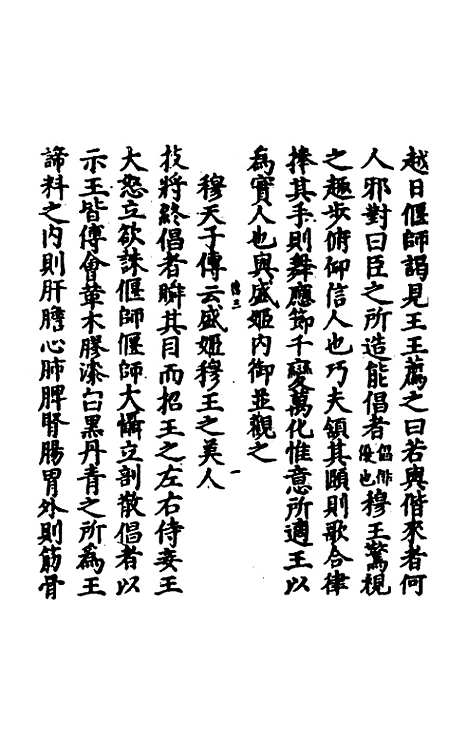 越日偃師謁見王王薦之曰若與偕來者何
人邪對曰臣之所造能倡者倡俳優也穆王驚視
之趣步俯仰信人也巧夫領其頤則歌合律
捧其手則舞應節千變萬化惟意所適王以
為實人也與盛姬內御並觀之
穆天子傳云盛姬穆王之美人
技將終倡者瞬其目而招王之左右侍妾王
大怒立欲誅偃師偃師大懾立剖散倡者以
示王皆傅會革木膠漆白黑丹青之所為王
諦料之內則肝膽心肺脾腎腸胃外則筋骨